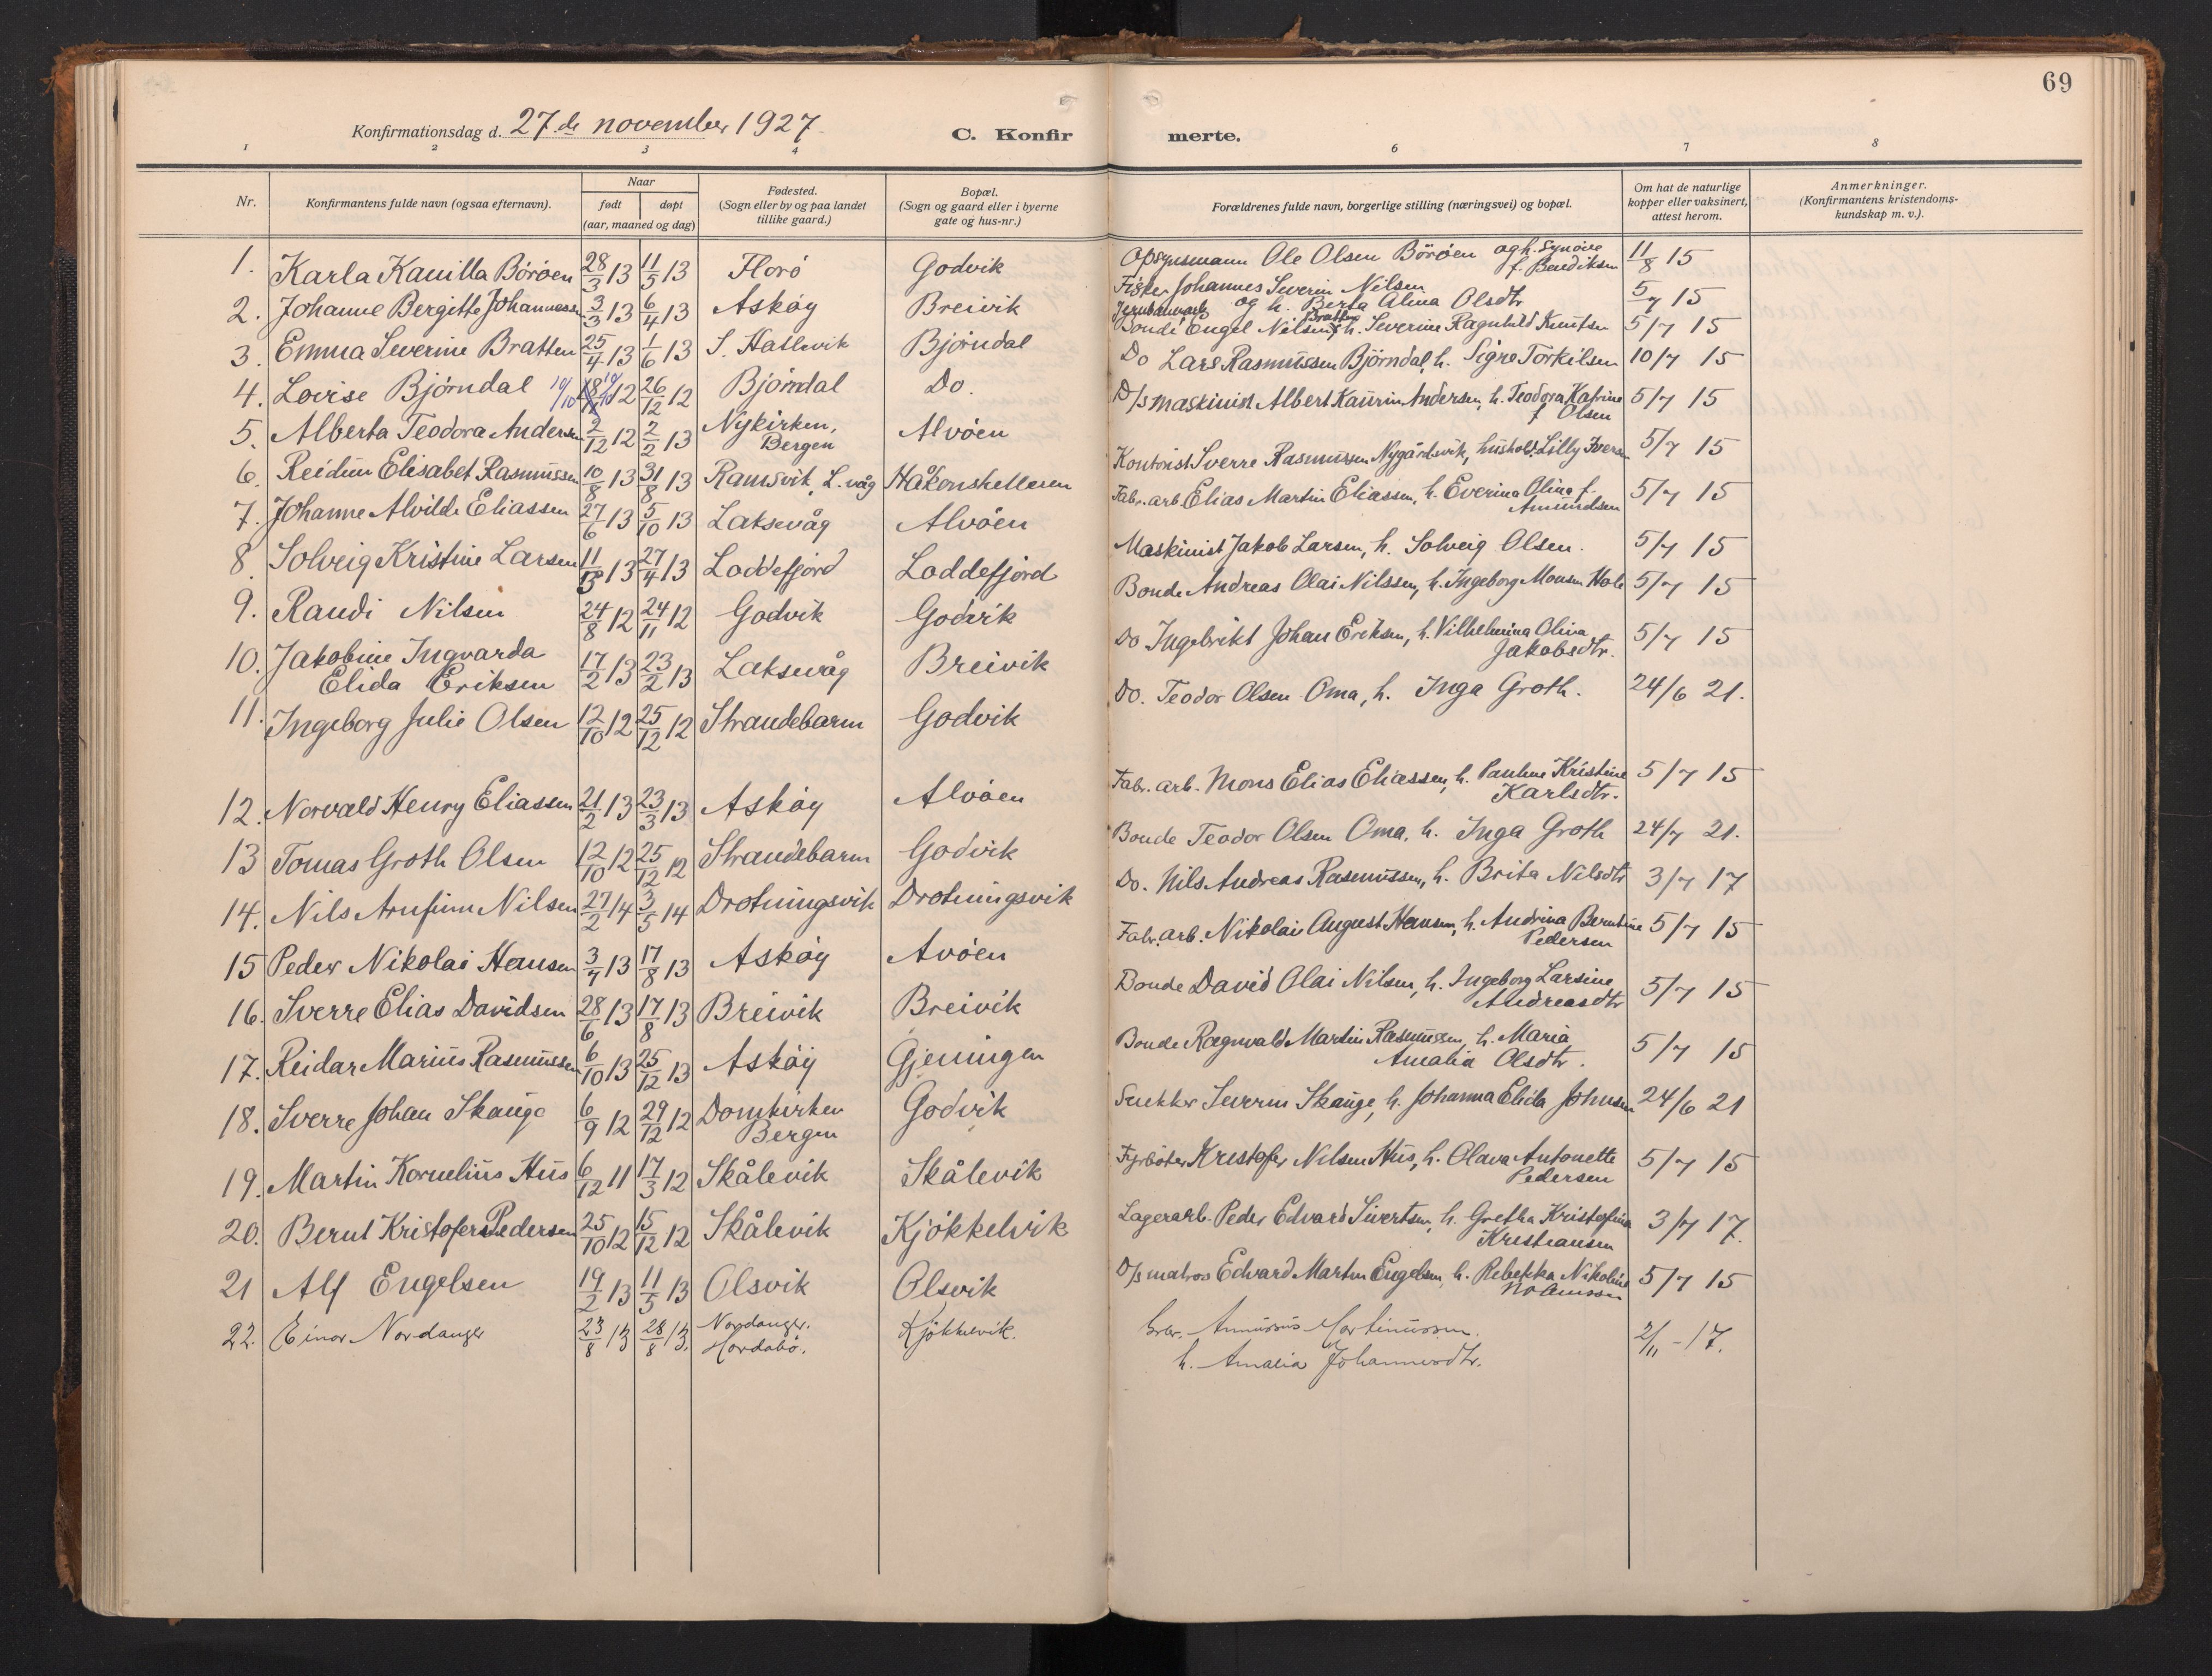 69
Konfirmationsdag d. 27de november 1927.
C. Konfir merte.
1 2 3 4 6 7 8
Nr.
Konfirmantens fulde navn (ogsaa efternavn).
Naar
født døpt
(aar, maaned og dag)
Fødested.
(Sogn eller by og paa landet
tillike gaard.)
Bopæl.
(Sogn og gaard eller i byerne
gate og hus-nr.)
Forældrenes fulde navn, borgerlige stilling (næringsvei) og bopæl.
Om hat de naturlige
kopper eller vaksinert,
attest herom.
Anmerkninger.
(Konfirmantens kristendoms-
kundskap m. v.).
1. Karla Kamilla Böröen 28/3 13 11/5 13 Florö Godvik Opsynsmann Ole Olsen Böröen og h. Synöve 11/8 15
f. Bendiksen
2. Johanne Bergitte Johannessen 3/3 13 6/4 13 Asköy Breivik Fisker Johannes Severin Nilsen 5/7 15
og h. Berta Alina Olsdtr
3. Emma Severine Bratten 25/4 13 1/6 13 S. Hallevik Björndal Jernbanearb. Bonde Engel Nilsen Bratten, h. Severine Ragnhild Knutsen 5/7 15
4. Lovise Björndal 10/10 18/11 12 26/12 12 Björndal Do. Do Lars Rasmussen Björndal, h. Sigre Torkilsen 10/7 15
5. Alberta Teodora Andersen 2/12 12 2/2 13 Nykirken, Alvöen D/s maskinist Albert Kaurin Andersen, h. Teodora Katrine 5/7 15
Bergen f. Olsen
6. Reidun Elisabet Rasmussen 10/8 13 31/8 13 Ramsvik, L.våg Håkonshelleren Kontorist Sverre Rasmussen Nygårdsvik, hushold. Lilly Iversen 5/7 15
7. Johanne Alvilde Eliassen 27/6 13 5/10 13 Laksevåg Alvöen Fabr. arb. Elias Martin Eliassen, h. Everina Olina f. 5/7 15
Amundsen
8. Solveig Kristine Larsen 11/3 13 27/4 13 Loddefjord Loddefjord Maskinist Jakob Larsen, h. Solveig Olsen. 5/7 15
9. Randi Nilsen 24/8 12 24/11 12 Godvik Godvik Bonde Andreas Olai Nilssen, h. Ingeborg Monsen Hole 5/7 15
10. Jakobine Ingvarda 17/2 13 23/2 13 Laksevåg Breivik Do Ingebrikt Johan Eriksen, h. Vilhelmina Oliva 5/7 15
Elida Eriksen Jakobsdtr.
11. Ingeborg Julie Olsen 12/10 12 25/12 12 Strandebarm Godvik Do. Teodor Olsen Oma, h. Inga Groth. 24/6 21.
12. Norvald Henry Eliassen 21/2 13 23/3 13 Asköy Alvöen Fabr. arb. Mons Elias Eliassen, h. Pauline Kristine 5/7 15
Karlsdtr.
13 Tomas Groth Olsen 12/10 12 25/12 12 Strandebarm Godvik Bonde Teodor Olsen Oma, h. Inga Groth 24/7 21.
14. Nils Arnfinn Nilsen 27/2 14 3/5 14 Drotningsvik Drotningsvik Do. Nils Andreas Rasmussen, h. Brita Nilsdtr 3/7 17
15 Peder Nikolai Hansen 3/7 13 17/8 13 Asköy Avöen Fabr. arb. Nikolai August Hansen, h. Andrina Berntine 5/7 15
Pedersen
16. Sverre Elias Davidsen 28/6 13 17/8 13 Breivik Breivik Bonde David Olai Nilsen, h. Ingeborg Larsine 5/7 15
Andreasdtr
17. Reidar Marius Rasmussen 6/10 13 25/12 13 Asköy Gjeningen Bonde Ragnvald Martin Rasmussen, h. Maria 5/7 15
Amalia Olsdtr.
18. Sverre Johan Skauge 6/9 12 29/12 12 Domkirken Godvik Snekker Severin Skauge, h. Johanna Elida Johnsen 24/6 21
Bergen
19. Martin Kornelius Hus 6/12 11 17/3 12 Skålevik Skålevik Fyrböter Kristofer Nilsen Hus, h. Olava Antonette 5/7 15
Pedersen
20. Bernt Kristofer Pedersen 25/10 12 15/12 12 Skålevik Kjökkelvik Lagerarb. Peder Edvard Sivertsen, h. Gretha Kristofina 3/7 17.
Kristiansen
21 Alf Engelsen 19/2 13 11/5 13 Olsvik Olsvik D/s matros Edvard Martin Engelsen, h. Rebekka Nikoline 5/7 15
22. Einar Nordanger 23/8 13 28/8 13. Nordanger. Kjökkelvik. Martinussen. 2/11 - 17.
Hordabö. h. Amalia Johannesdtr.